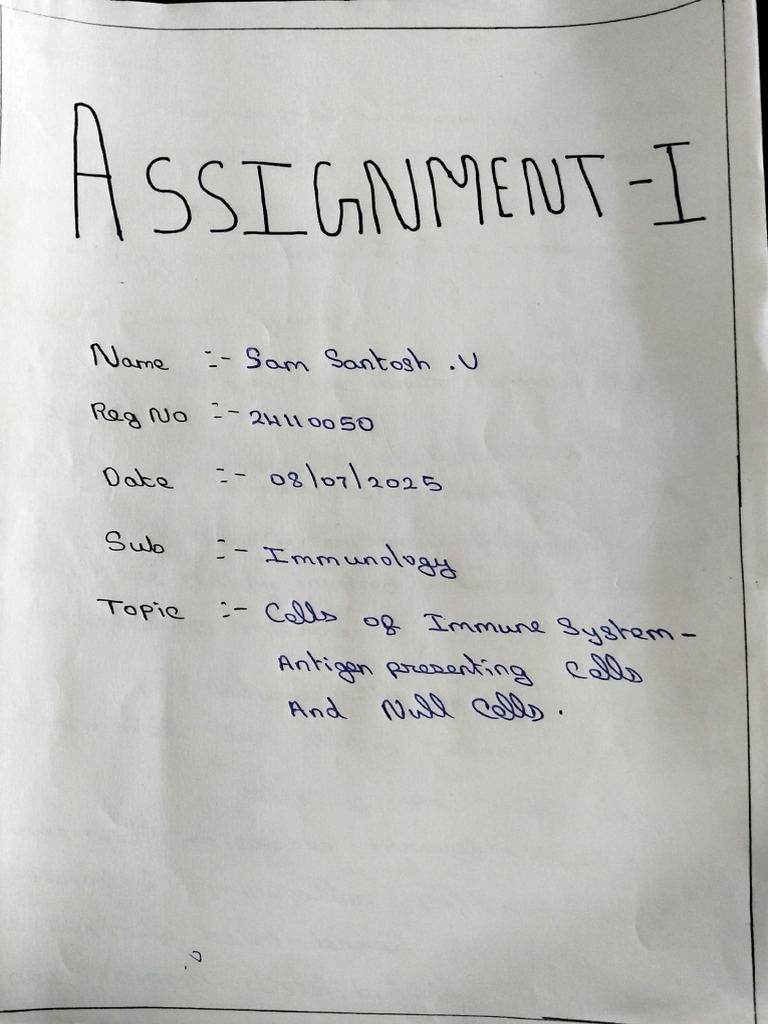 ASSIGNMENT-I
Name :- Sam Santosh .V
Reg No :- 24110050
Date :- 08/07/2025
Sub :- Immunology
Topic :- Cells of Immune System-
Antigen presenting Cells
And Null Cells.